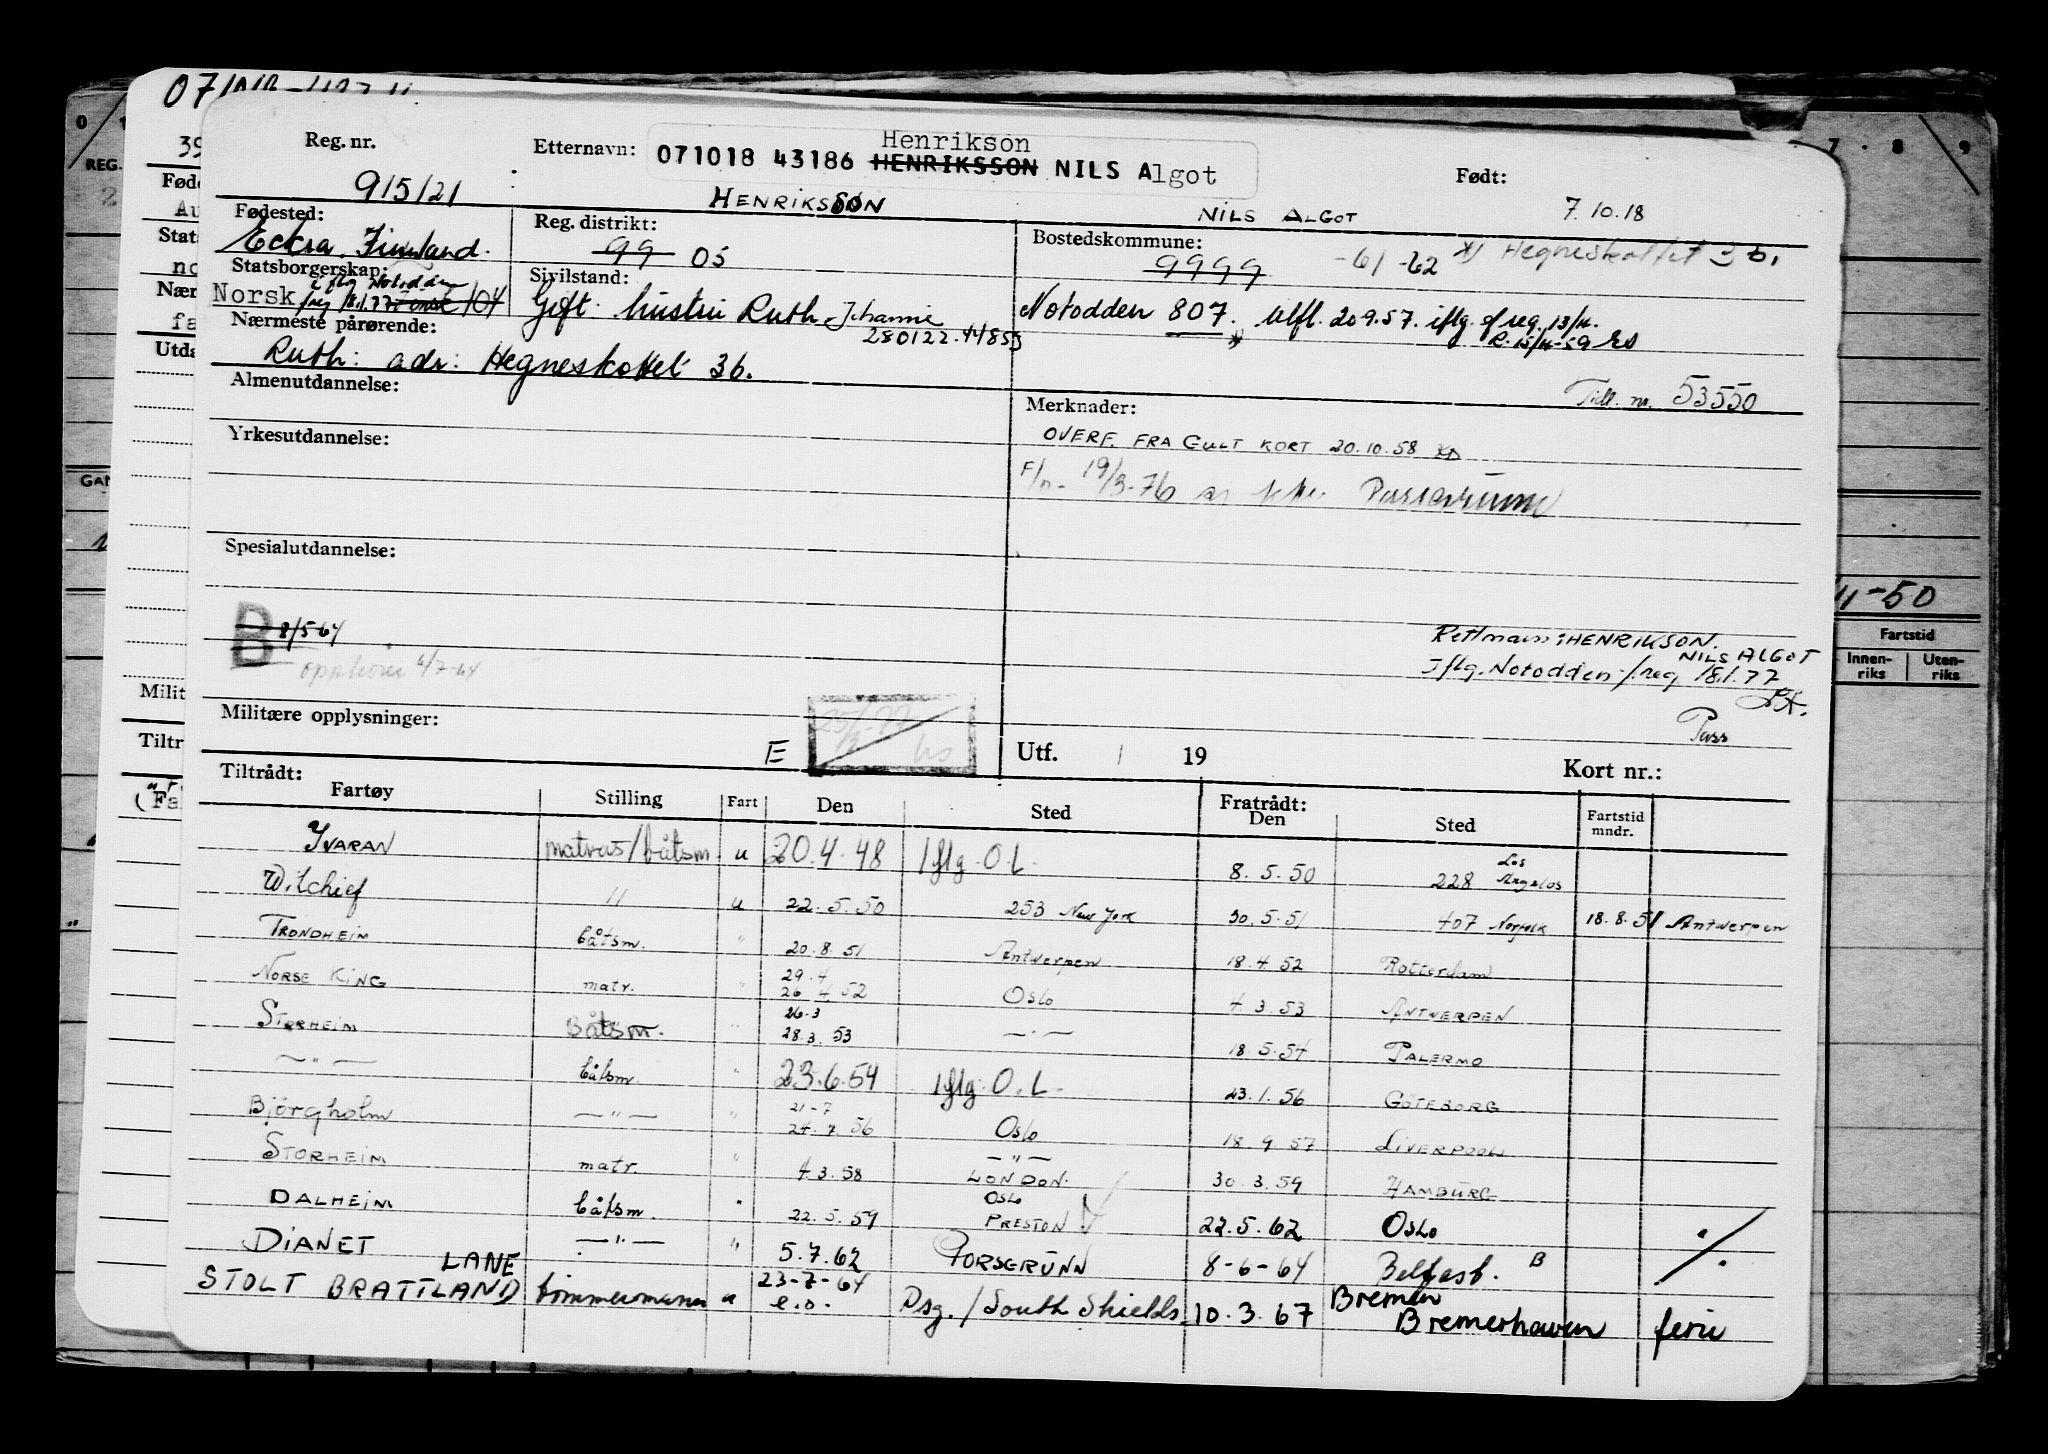 Reg. nr.
9/5/21
Etternavn:
Henrikson
071018 43186 HENRIKSSON NILS Algot
HENRIKSSON
NILS ALGOT
Født:
7.10.18
Fødested:
Eckrø. Finnland.
Reg. distrikt:
99 05
Bostedskommune:
9999
-61 -62 *) Hegneskollet 3 b,
Statsborgerskap:
iflg Notodden
Norsk f/reg 18.1.77 finsk 104
Sivilstand:
Gift. hustru Ruth Johanne
280122.44853
Notodden 807. utfl. 20 9.57. iflg. f reg. 13/11.
R. 15/11-59 Es
Nærmeste pårørende:
Ruth: adr: Hegneskollet 3b.
Almenutdannelse:
Tidl. nr. 53550
Merknader:
OVERF. FRA GULT KORT 20.10.58
F/n- 19/3-76
Yrkesutdannelse:
Spesialutdannelse:
B 8/5-64
opphører 6/7-64
Rett navn: HENRIKSON.
NILS ALGOT
Iflg. Notodden f.reg 18.1.77
Pass
Militære opplysninger:
E
Utf. / 19
Kort nr.:
Tiltrådt:
Fartøy Stilling Fart Den Sted Fratrådt: Den Sted Fartstid mndr.
IVARAN matros/båtsm. u 20.4.48 Iflg. O.L. 8.5.50 228 Los Angelos
Wilchief " u 22.5.50 253 New York 30.5.51 407 Norfolk 18.8.51 Antwerpen
TRONDHEIM båtsm. " 20.8.51 Antwerpen 18.4.52 Rotterdam
29.4
NORSE KING matr. " 26 4 52 Oslo 4.3.53 ANTWERPEN
26.3
STORHEIM Båtsm. " 28.3.53 — " — 18.5.54 PALERMO
— " — båtsm. " 23.6.54 Iflg. O.L. 23.1.56 GÖTEBORG
21-7
Bjørgholm — " — " 24.7.56 Oslo 18 9 57 LIVERPOOL
— " —
STORHEIM matr. " 4.3.58 LONDON. 30.3.59 HAMBURG
OSLO
DALHEIM båtsm. " 22.5.59 PRESTON 22.5.62 OSLO
DIANET — " — " 5.7.62 PORSGRUNN 8-6-64 Belfast. B
LANE 23-7-64 Bremen
STOLT BRATTLAND tømmermann u e.o. Psg./South Shields 10.3.67 Bremerhaven ferie
REG.
Føde
Stats
Nær
Utda
Milit
Tiltr
7 · 8 9
11-50
Fartstid
Innenriks Utenriks